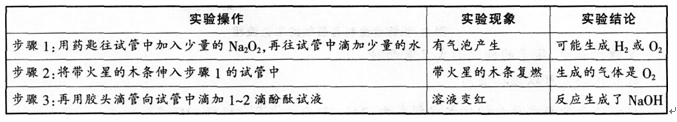 实验操作 实验现象 实验结论
步骤1:用药匙往试管中加入少量的Na₂O₂,再往试管中滴加少量的水 有气泡产生 可能生成H₂或O₂
步骤2:将带火星的木条伸入步骤1的试管中 带火星的木条复燃 生成的气体是O₂
步骤3:再用胶头滴管向试管中滴加1~2滴酚酞试液 溶液变红 反应生成了NaOH